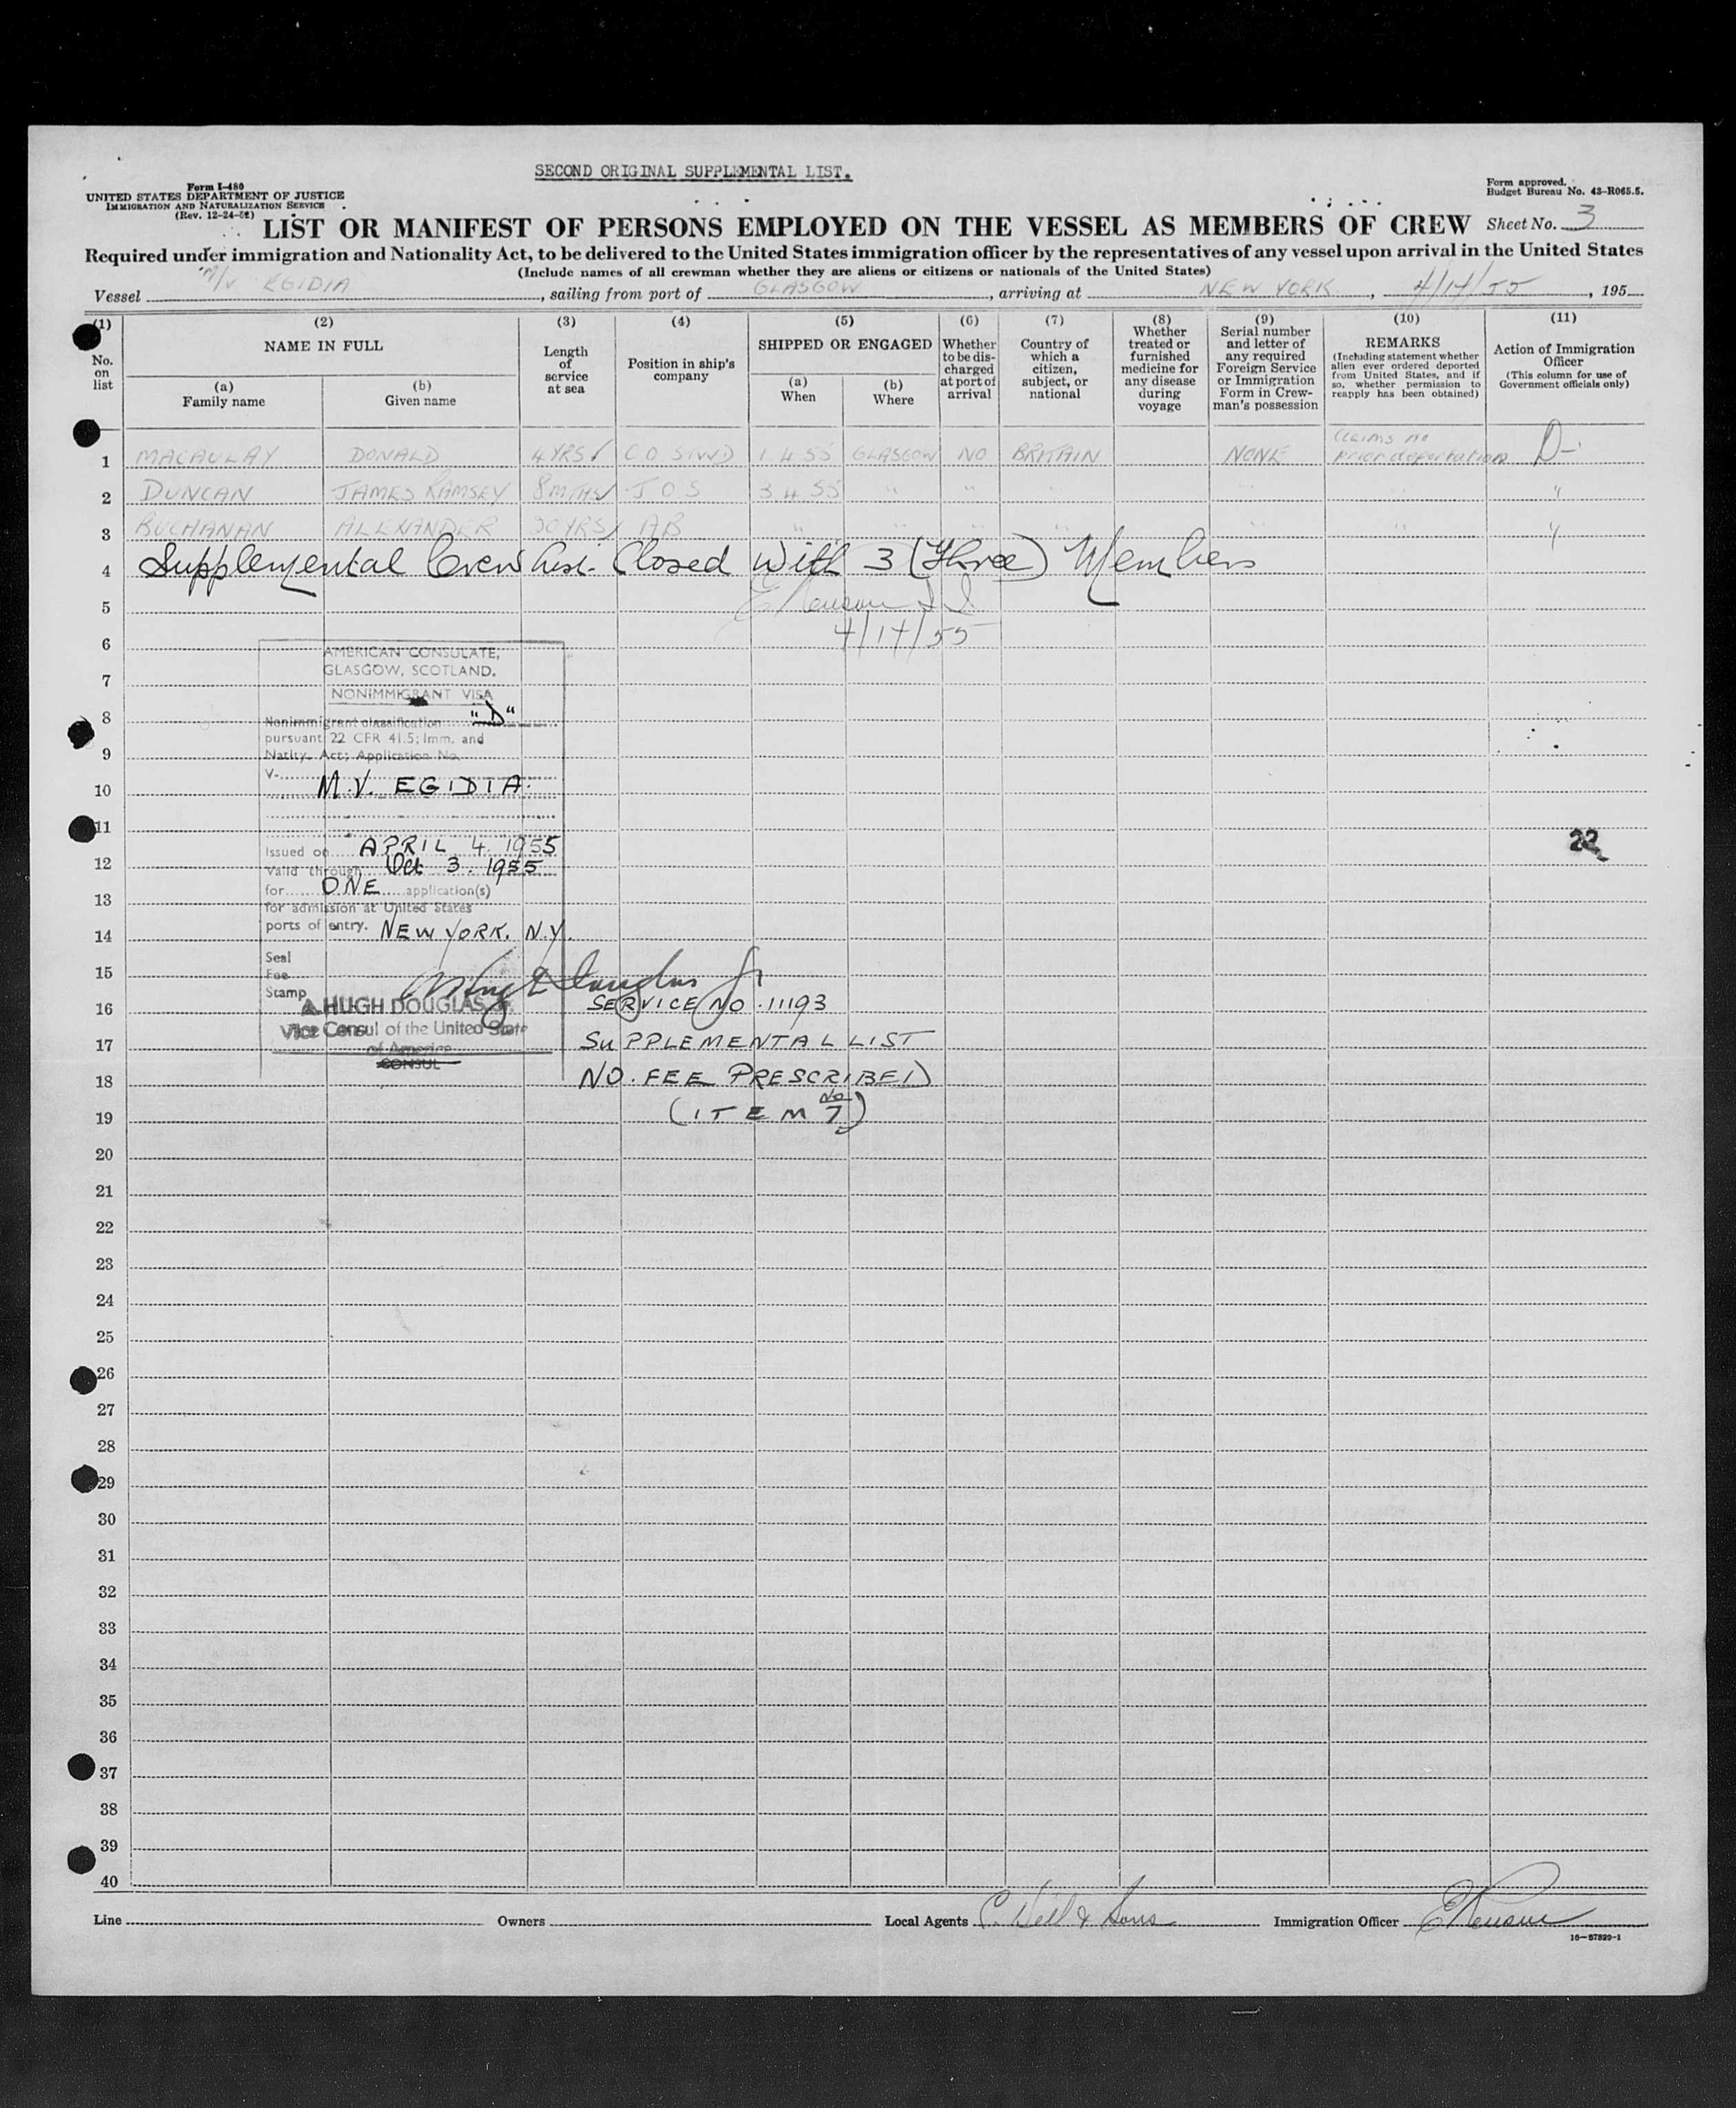 SECOND ORIGINAL SUPPLEMENTAL LIST.
Form I-480
UNITED STATES DEPARTMENT OF JUSTICE
IMMIGRATION AND NATURALIZATION SERVICE
(Rev. 12-24-52)
Form approved.
Budget Bureau No. 43-R065.5.
LIST OR MANIFEST OF PERSONS EMPLOYED ON THE VESSEL AS MEMBERS OF CREW
Sheet No. 3
Required under immigration and Nationality Act, to be delivered to the United States immigration officer by the representatives of any vessel upon arrival in the United States
(Include names of all crewman whether they are aliens or citizens or nationals of the United States)
Vessel M/V EGIDIA, sailing from port of GLASGOW, arriving at NEW YORK, 4/14/55, 195
(1) No. on list
(2) NAME IN FULL
(a) Family name
(b) Given name
(3) Length of service at sea
(4) Position in ship's company
(5) SHIPPED OR ENGAGED
(a) When
(b) Where
(6) Whether to be discharged at port of arrival
(7) Country of which a citizen, subject, or national
(8) Whether treated or furnished medicine for any disease during voyage
(9) Serial number and letter of any required Foreign Service or Immigration Form in Crewman's possession
(10) REMARKS (Including statement whether alien ever ordered deported from United States, and if so, whether permission to reapply has been obtained)
(11) Action of Immigration Officer (This column for use of Government officials only)
1 MACAULAY DONALD 4 YRS C O STWD 1.4.55 GLASGOW NO BRITAIN NONE Claims no prior deportation D-
2 DUNCAN JAMES RAMSEY 8 MTHS J O S 3.4.55 " " " " " "
3 BUCHANAN ALEXANDER 30 YRS AB " " " " " " "
4 Supplemental Crew List Closed with 3 (Three) Members
5
4/14/55
6
AMERICAN CONSULATE,
GLASGOW, SCOTLAND.
7
NONIMMIGRANT VISA
8
Nonimmigrant classification "D"
pursuant 22 CFR 41.5; Imm. and
9
Natlty. Act; Application No.
V-
10
M.V. EGIDIA.
11
Issued on APRIL 4. 1955
12
Valid through Oct 3. 1955
for ONE application(s)
13
for admission at United States
ports of entry. NEW YORK. N.Y.
14
Seal
15
Fee
Stamp
A. HUGH DOUGLAS Jr.
16
SERVICE NO. 11193
Vice Consul of the United State
of America
17
SUPPLEMENTAL LIST
CONSUL
18
NO. FEE PRESCRIBED
19
(ITEM No 7)
22
20
21
22
23
24
25
26
27
28
29
30
31
32
33
34
35
36
37
38
39
40
Line
Owners
Local Agents C. Hill & Sons
Immigration Officer
16-57829-1